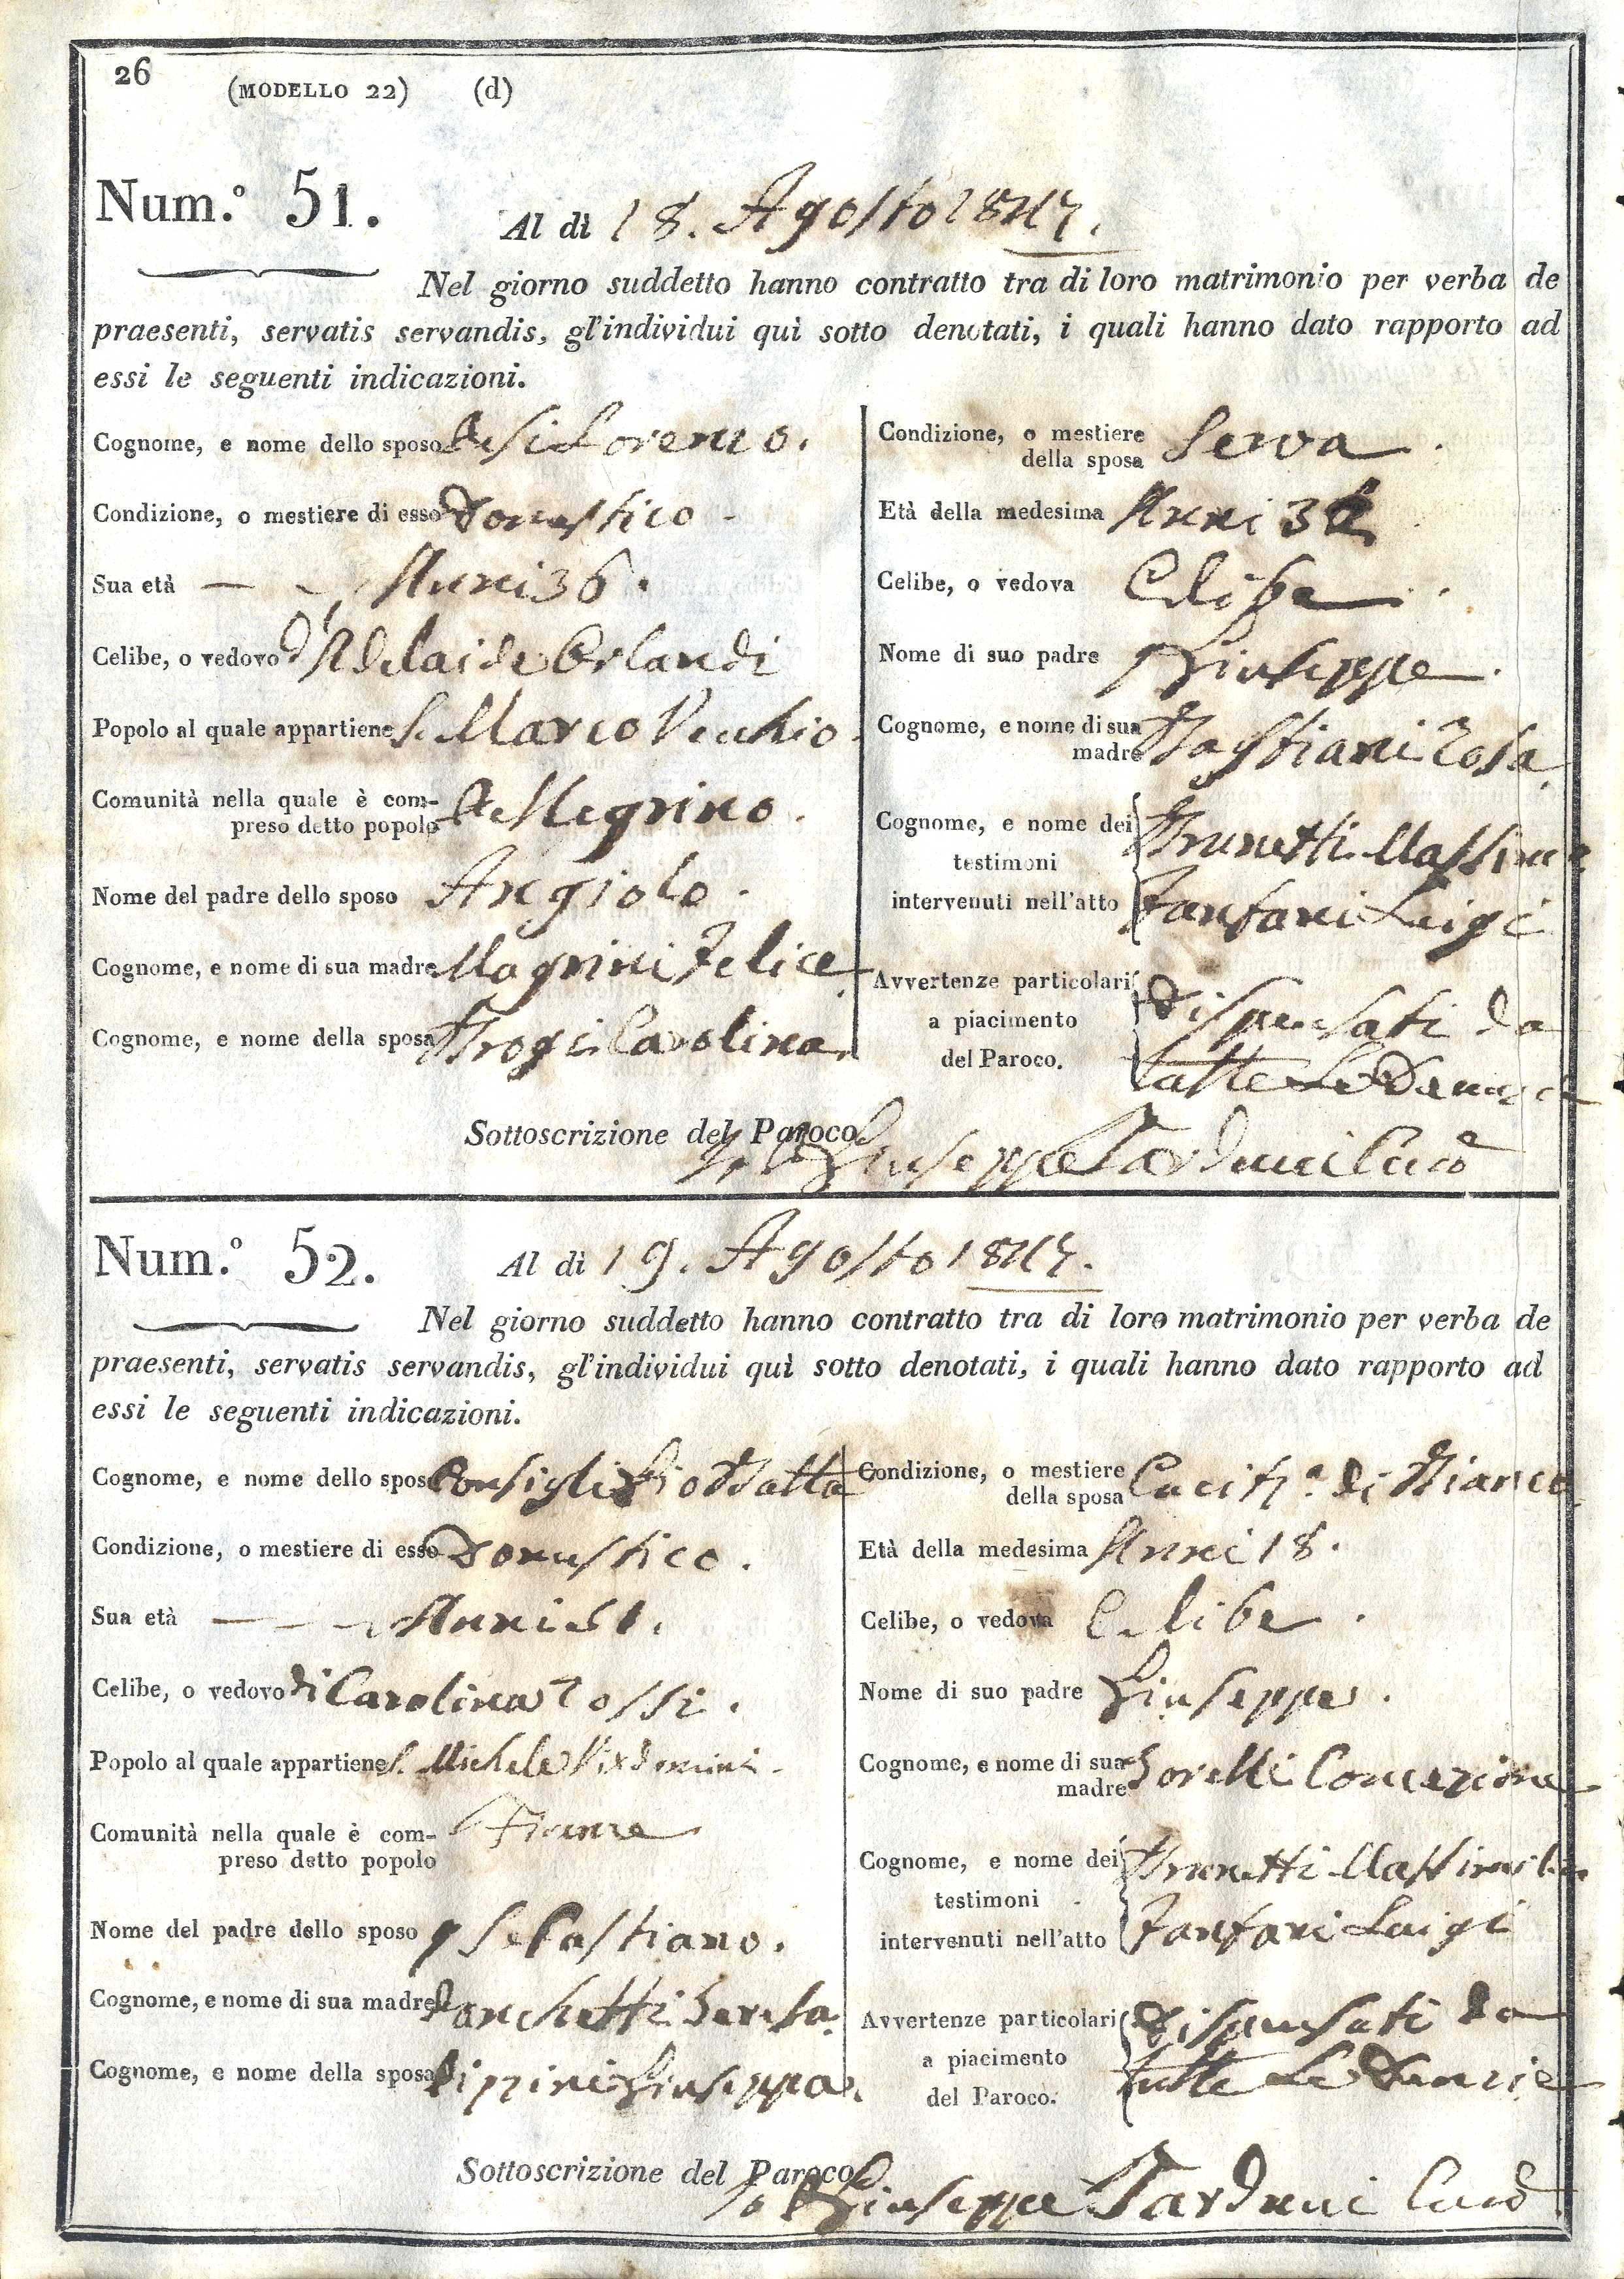 26
(MODELLO 22) (d)
Num.º 51.
Al dì 18. Agosto 1847.
Nel giorno suddetto hanno contratto tra di loro matrimonio per verba de
praesenti, servatis servandis, gl'individui quì sotto denotati, i quali hanno dato rapporto ad
essi le seguenti indicazioni.
Cognome, e nome dello sposo Lorenzo.
Condizione, o mestiere di esso Domestico
Sua età Anni 36.
Celibe, o vedovo d'Adelaide Orlandi
Popolo al quale appartiene S. Marco Vecchio.
Comunità nella quale è com-
preso detto popolo Pellegrino.
Nome del padre dello sposo Angiolo.
Cognome, e nome di sua madre Magrini Felice.
Cognome, e nome della sposa Brogi Carolina.
Condizione, o mestiere
della sposa Serva.
Età della medesima Anni
Celibe, o vedova Celibe.
Nome di suo padre Giuseppe.
Cognome, e nome di sua
madre Bastiani Rosa.
Cognome, e nome dei
testimoni
intervenuti nell'atto
Brunetti
Fanfani Luigi
Avvertenze particolari
a piacimento
del Paroco.
Dispensati da
tutte le Denunzie
Sottoscrizione del Paroco Giuseppe Tarduci Curº
Num.º 52.
Al dì 19. Agosto 1847.
Nel giorno suddetto hanno contratto tra di loro matrimonio per verba de
praesenti, servatis servandis, gl'individui quì sotto denotati, i quali hanno dato rapporto ad
essi le seguenti indicazioni.
Cognome, e nome dello sposo Consigli Gio Batta
Condizione, o mestiere di esso Domestico.
Sua età Anni 51.
Celibe, o vedovo di Carolina Rossi.
Popolo al quale appartiene S. Michele Visdomini.
Comunità nella quale è com-
preso detto popolo Firenze
Nome del padre dello sposo q Sebastiano.
Cognome, e nome di sua madre Banchetti Teresa.
Cognome, e nome della sposa Pippini Giuseppa.
Condizione, o mestiere
della sposa Cucitrª di Bianco
Età della medesima Anni 18.
Celibe, o vedova Celibe.
Nome di suo padre Giuseppe.
Cognome, e nome di sua
madre Borelli Concezione
Cognome, e nome dei
testimoni
intervenuti nell'atto
Brunetti
Fanfani Luigi
Avvertenze particolari
a piacimento
del Paroco.
Dispensati da
tutte le Denunzie
Sottoscrizione del Paroco Giuseppe Tarduci Curº